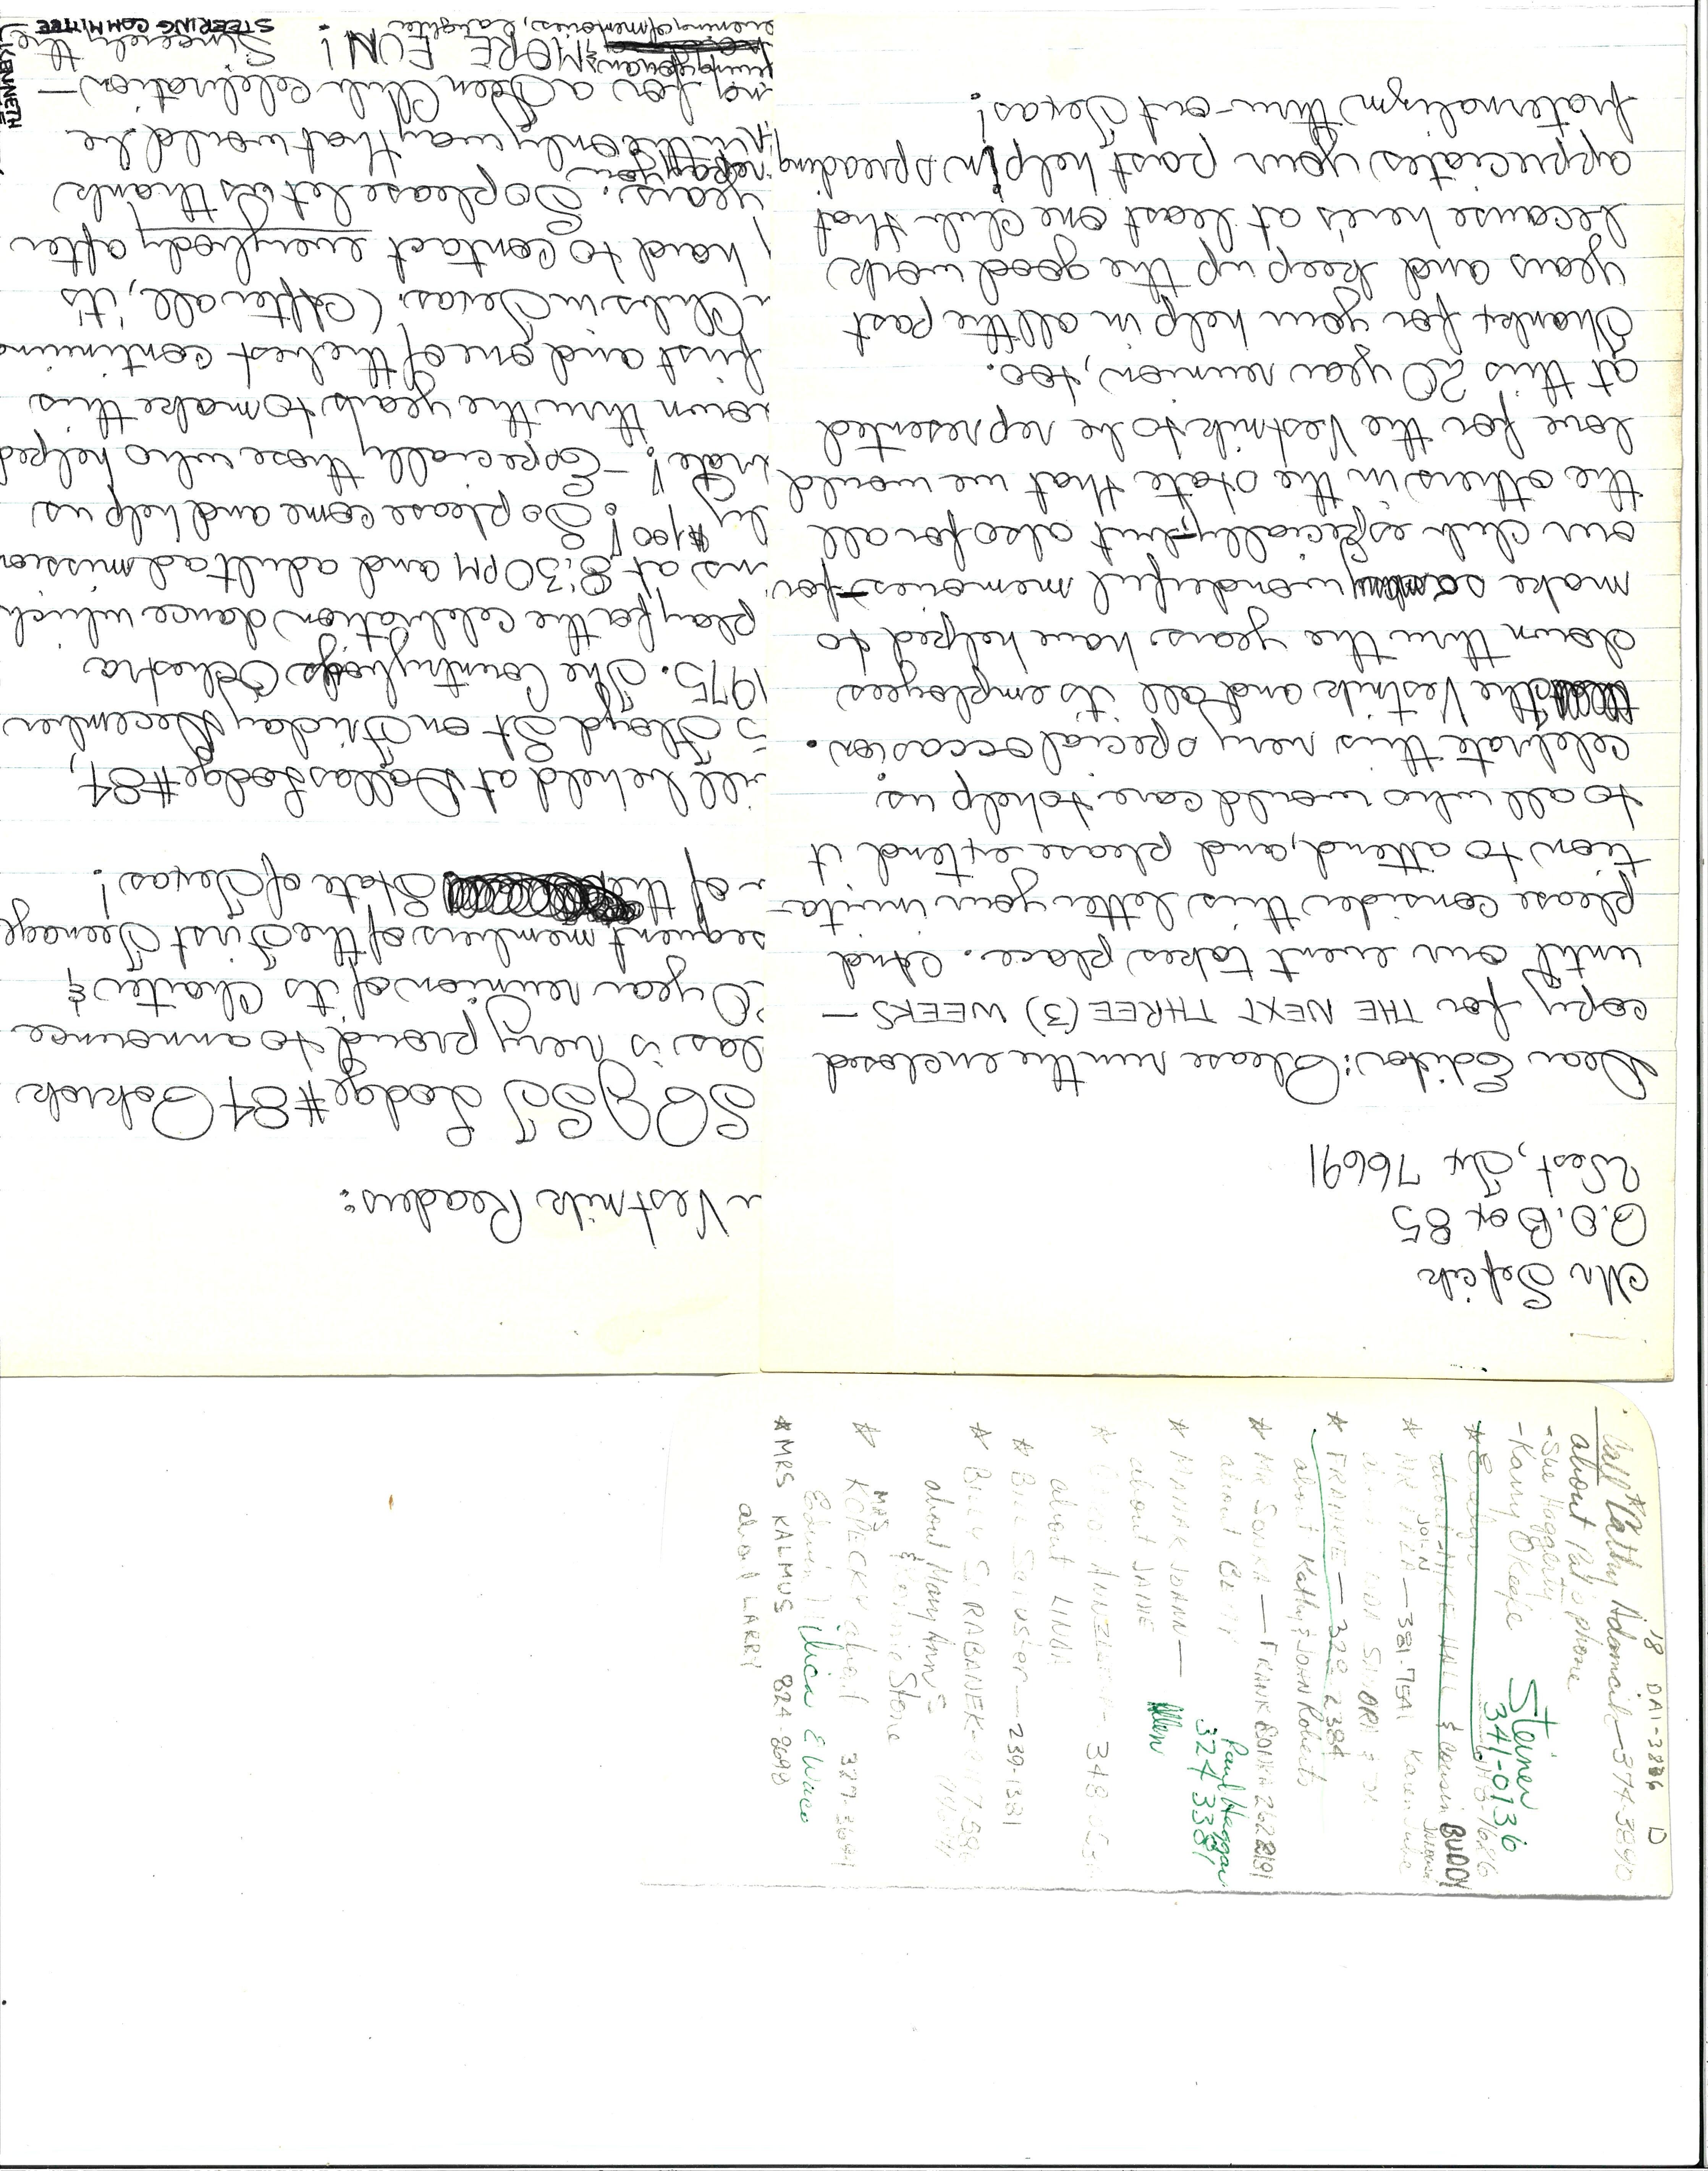 Mr Sefcik
P.O. Box 85
West, Tx 76691
Dear Editor: Please run the enclosed
copy for THE NEXT THREE (3) WEEKS —
until our event takes place. And
please consider this letter your invita-
tion to attend, and please extend it
to all who would care to help us
celebrate this very special occasion.
the Vestnik and all its employees
down thru the years have helped to
make so many wonderful memories for
our club especially but also for all
the others in the state that we would
love for the Vestnik to be represented
at this 20 year reunion, too.
Thanks for your help in all the past
years and keep up the good work
because here's at least one club that
appreciates your past help in spreading
fraternalism thru-out Texas!
Vestnik Readers:
SPJST Lodge #84 Pokrok
las is very proud to announce
0 year reunion of its Charter &
sequent members of the First Teenage
of the State of Texas!
ill be held at Dallas Lodge #84,
5 Floyd St on Friday December
1975. The Countryside Orchestra
play for the celebration dance which
ns at 8:30 PM and adult admission
ly $1.00! So please come and help us
brate! — Especially those who helped
own thru the years to make this
first and one of the best continuing
Clubs in Texas. (After all, it's
hard to contact everybody after
years. So please let us thank
repay you
in the only way that would be
ing for a Teen Club celebration —
giving you an
evening of memories, laughter
& MORE FUN! Sincerely, the
STEERING COMMITTEE
KENNETH
18 DA1-3886 D
Call Cathy Adamcik — 374-3890
about Pat's phone
- She Haggerty
- Karry O'Keefe
Steiner
341-0136
about MIKE HALL & cousin BUDDY
JOHN
* MR — 381-7541 Karen
* FRANKIE — 328 2384
about Kathy & JOHN Roberts
* MR SOUKA — FRANK 262 8191
about Betty
Paul Haggar
324 3381
* MAMAK JOANN —
about JANE
Allen
about LINDA
* BILL — 239-1381
* BILLY SRABANEK
about Mary Ann
& Stone
* MRS KOPECKY about 327-3691
Edwin Alica & Waco
* MRS KALMUS 824-8698
about LARRY